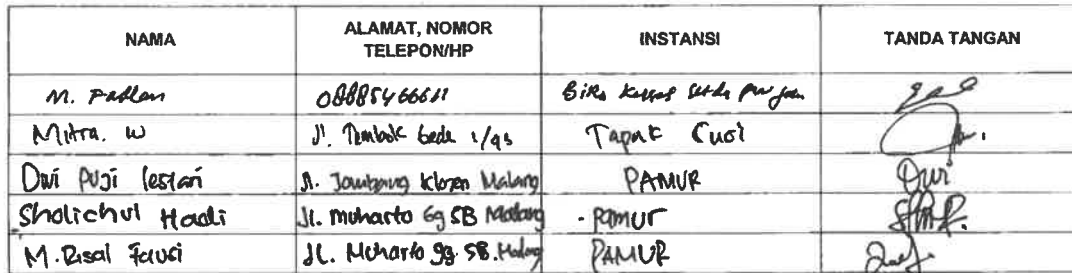 NAMA ALAMAT, NOMOR TELEPON/HP INSTANSI TANDA TANGAN
M. Fadlan Biro
Mitra. W Jl. Tembok Gede Tapak Suci
Dwi Puji lestari Jl. Jombang Klojen Malang PAMUR Dwi
Sholichul Hadi Jl. Muharto Gg 5B Malang - PAMUR
M. Risal Fauzi JL. Muharto Gg. 5B. Malang PAMUR